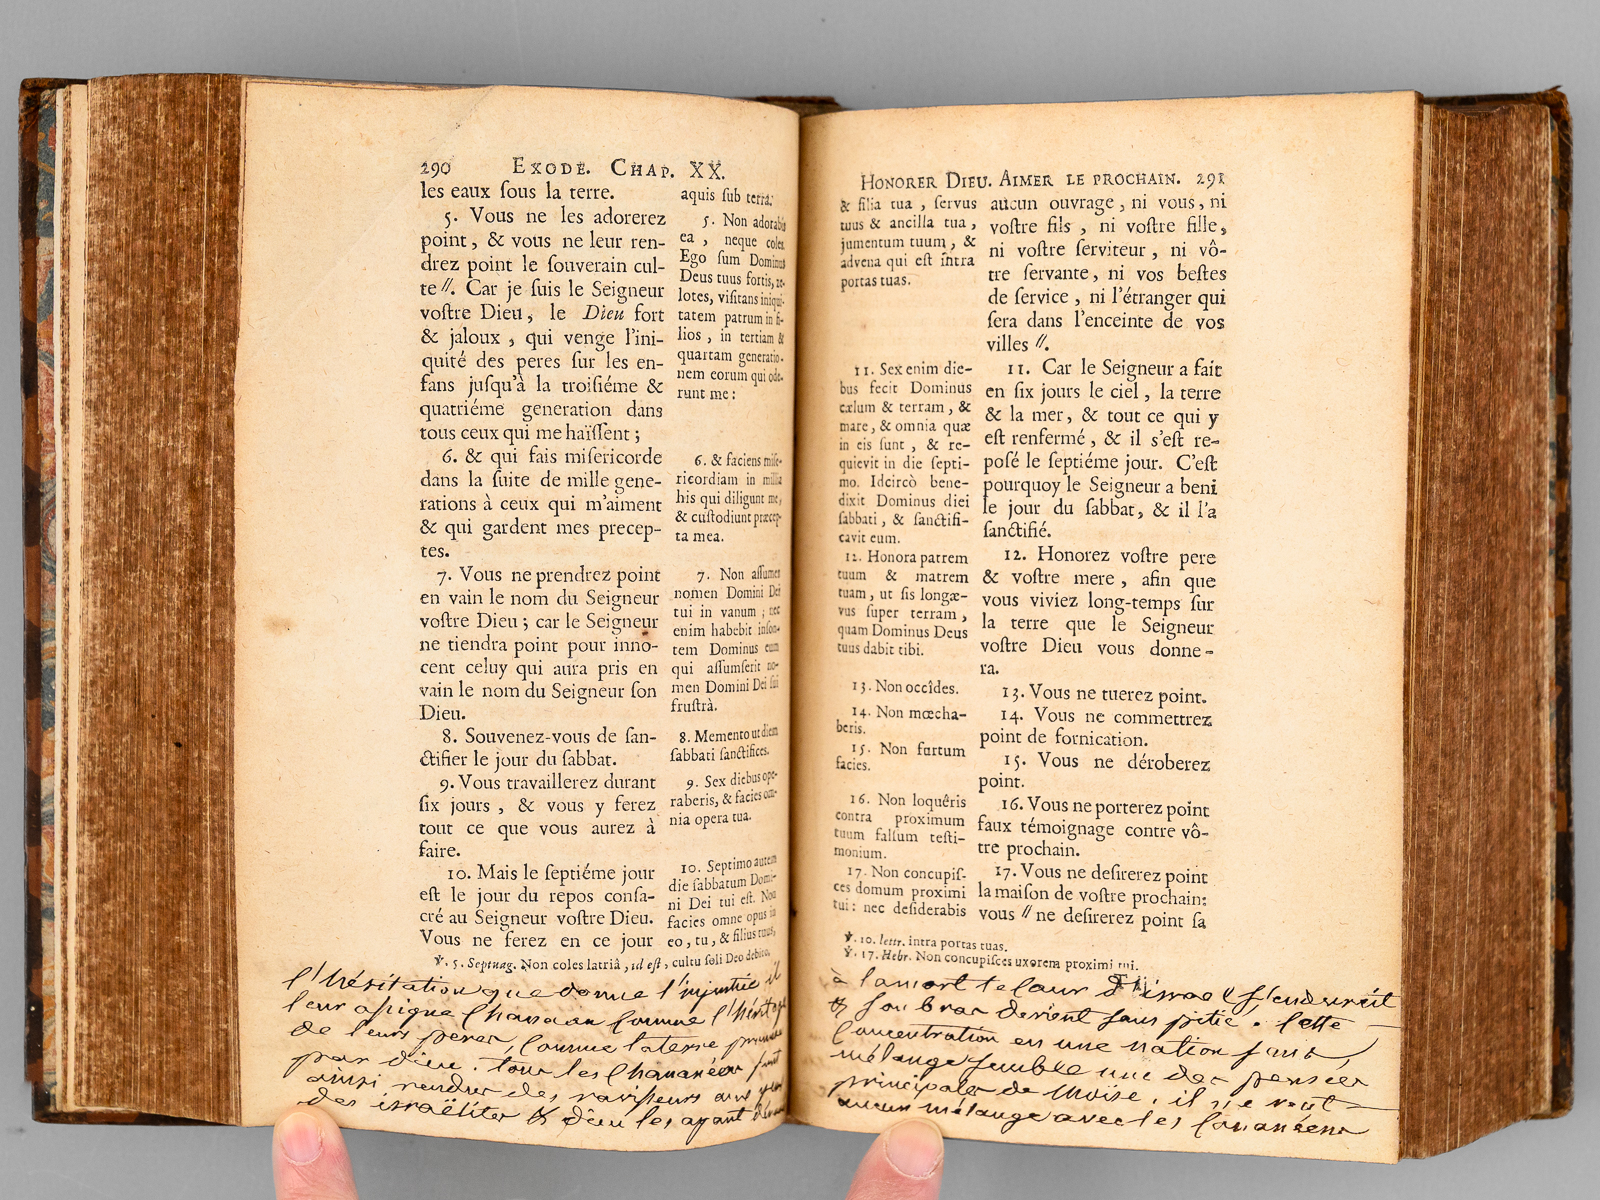 290 EXODE. CHAP. XX.
les eaux ſous la terre.
5. Vous ne les adorerez
point, & vous ne leur ren-
drez point le ſouverain cul-
te //. Car je ſuis le Seigneur
voſtre Dieu, le Dieu fort
& jaloux, qui venge l'ini-
quité des peres ſur les en-
fans juſqu'à la troiſiéme &
quatriéme generation dans
tous ceux qui me haïſſent;
6. & qui fais miſericorde
dans la ſuite de mille gene-
rations à ceux qui m'aiment
& qui gardent mes precep-
tes.
7. Vous ne prendrez point
en vain le nom du Seigneur
voſtre Dieu; car le Seigneur
ne tiendra point pour inno-
cent celuy qui aura pris en
vain le nom du Seigneur ſon
Dieu.
8. Souvenez-vous de ſan-
ctifier le jour du ſabbat.
9. Vous travaillerez durant
ſix jours, & vous y ferez
tout ce que vous aurez à
faire.
10. Mais le ſeptiéme jour
eſt le jour du repos conſa-
cré au Seigneur voſtre Dieu.
Vous ne ferez en ce jour
aquis ſub terra:
5. Non adorabis
ea, neque coles.
Ego ſum Dominus
Deus tuus fortis, ze-
lotes, viſitans iniqui-
tatem patrum in fi-
lios, in tertiam &
quartam generatio-
nem eorum qui ode-
runt me:
6. & faciens miſe-
ricordiam in millia
his qui diligunt me,
& cuſtodiunt præcep-
ta mea.
7. Non aſſumes
nomen Domini Dei
tui in vanum; nec
enim habebit inſon-
tem Dominus eum
qui aſſumſerit no-
men Domini Dei ſui
fruſtrà.
8. Memento ut diem
ſabbati ſanctifices.
9. Sex diebus ope-
raberis, & facies om-
nia opera tua.
10. Septimo autem
die ſabbatum Domi-
ni Dei tui eſt. Non
facies omne opus in
eo, tu, & filius tuus,
℣. 5. Septuag. Non coles latriâ, id eſt, cultu ſoli Deo debito.
l'hésitation que donne l'injustice il
leur assigne Chanaan comme l'héritage
de leurs peres, comme la terre promise
par dieu. tous les Chananéens sont
ainsi rendus des ravisseurs aux yeux
des israëlites & dieu les ayant
HONORER DIEU. AIMER LE PROCHAIN. 291
& filia tua, ſervus
tuus & ancilla tua,
jumentum tuum, &
advena qui eſt intra
portas tuas.
11. Sex enim die-
bus fecit Dominus
cælum & terram, &
mare, & omnia quæ
in eis ſunt, & re-
quievit in die ſepti-
mo. Idcircò bene-
dixit Dominus diei
ſabbati, & ſanctifi-
cavit eum.
12. Honora patrem
tuum & matrem
tuam, ut ſis longæ-
vus ſuper terram,
quam Dominus Deus
tuus dabit tibi.
13. Non occîdes.
14. Non mœcha-
beris.
15. Non furtum
facies.
16. Non loquêris
contra proximum
tuum falſum teſti-
monium.
17. Non concupiſ-
ces domum proximi
tui: nec deſiderabis
aucun ouvrage, ni vous, ni
voſtre fils, ni voſtre fille,
ni voſtre ſerviteur, ni vô-
tre ſervante, ni vos beſtes
de ſervice, ni l'étranger qui
ſera dans l'enceinte de vos
villes //.
11. Car le Seigneur a fait
en ſix jours le ciel, la terre
& la mer, & tout ce qui y
eſt renfermé, & il s'eſt re-
poſé le ſeptiéme jour. C'eſt
pourquoy le Seigneur a beni
le jour du ſabbat, & il l'a
ſanctifié.
12. Honorez voſtre pere
& voſtre mere, afin que
vous viviez long-temps ſur
la terre que le Seigneur
voſtre Dieu vous donne-
ra.
13. Vous ne tuerez point.
14. Vous ne commettrez
point de fornication.
15. Vous ne déroberez
point.
16. Vous ne porterez point
faux témoignage contre vô-
tre prochain.
17. Vous ne deſirerez point
la maiſon de voſtre prochain:
vous // ne deſirerez point ſa
℣. 10. lettr. intra portas tuas.
℣. 17. Hebr. Non concupiſces uxorem proximi tui.
à la mort le cœur d'israel s'endurcit
& son bras devient sans pitié. Cette
Concentration en une nation sans
mélange semble une des pensées
principales de Moïse. il ne veut
aucun mélange avec les Cananéens